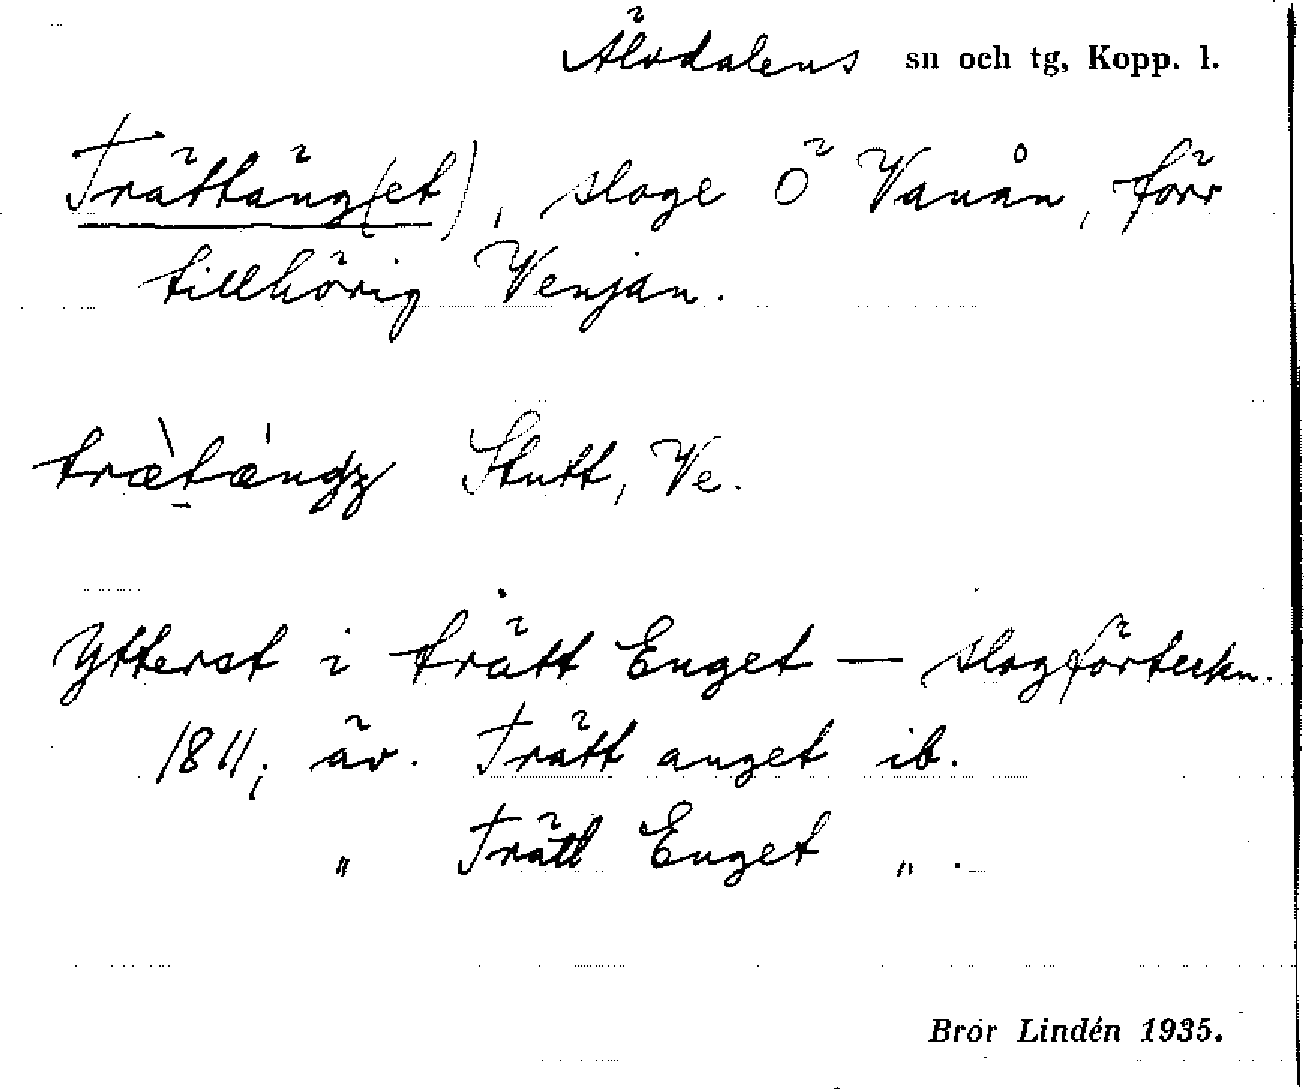 Älvdalens sn och tg, Kopp. l.
Trättäng(et), sloge Ö Vanån, förr
tillhörig Venjan.
Stutt, Ve.
Ytterst i trätt Enget — slogförteckn.
1811; äv. Trätt anget ib.
„ Trätt Enget „ .
Bror Lindén 1935.